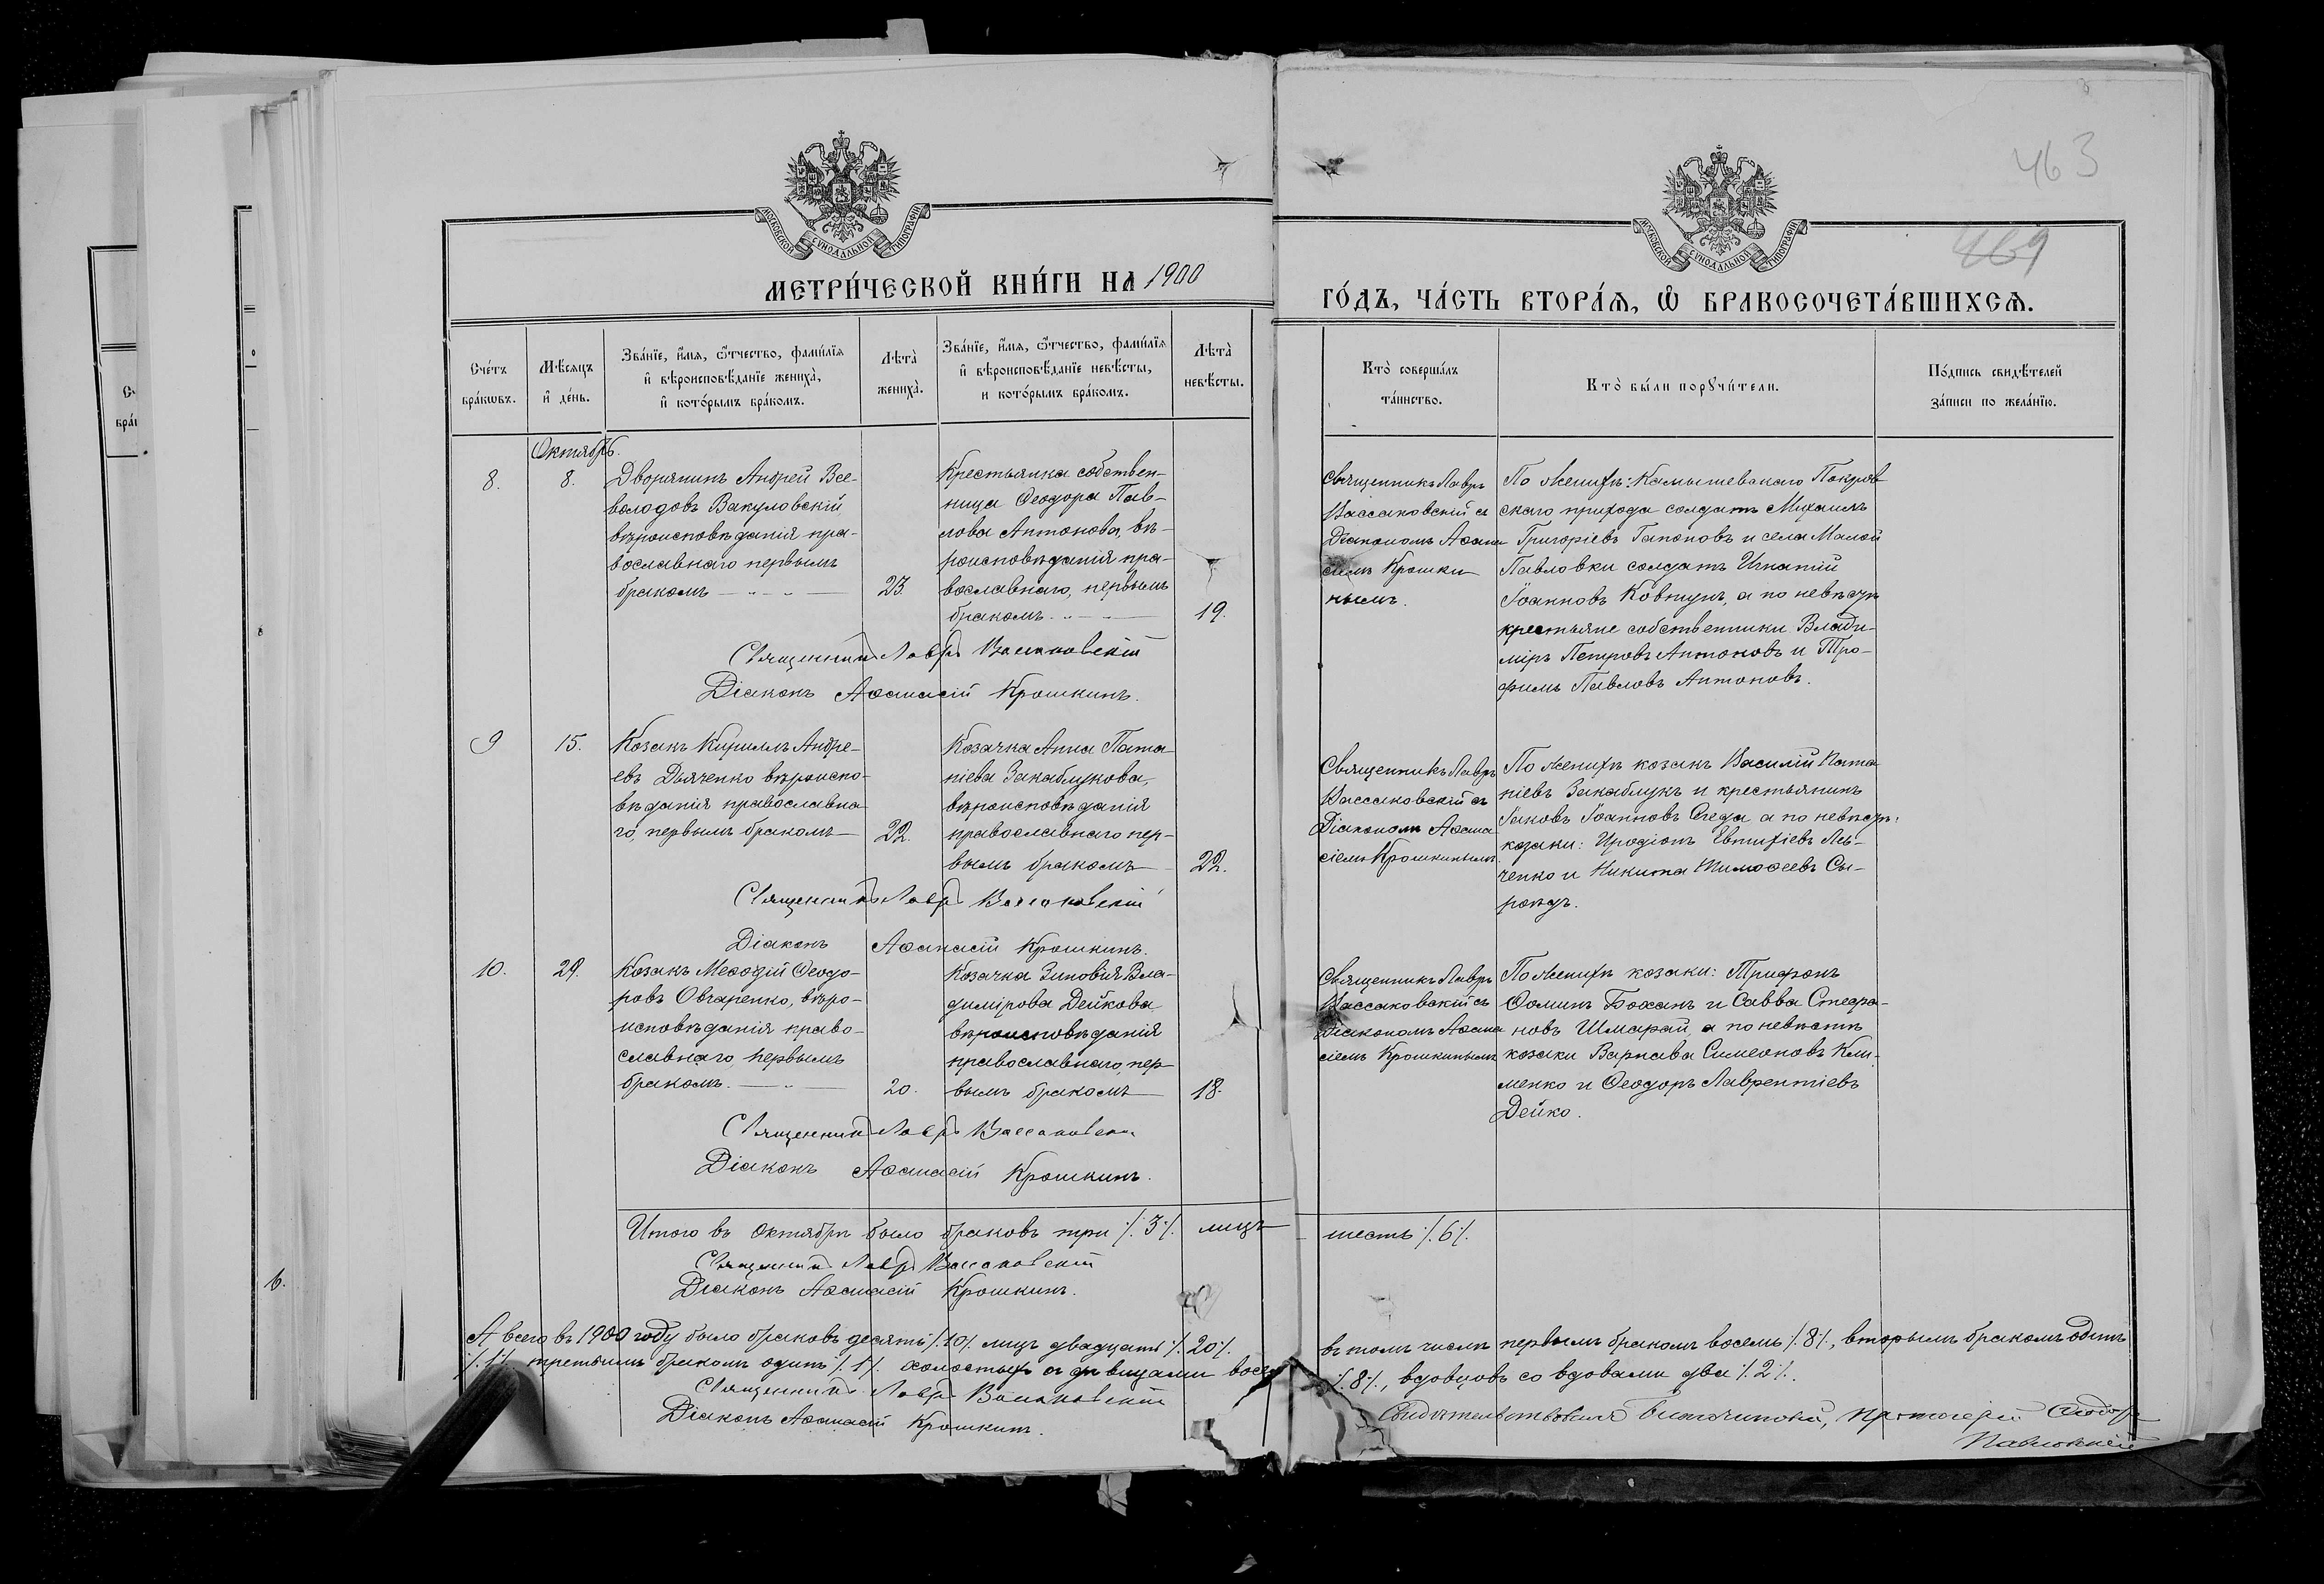 463
469
МОСКОВСКОЙ СѴНОДАЛЬНОЙ ТИПОГРАФІИ
МОСКОВСКОЙ СѴНОДАЛЬНОЙ ТИПОГРАФІИ
МЕТРИ́ЧЕСКОЙ КНИ́ГИ НА 1900
ГО́ДЪ, ЧА́СТЬ ВТОРА́Я, Ѽ БРАКОСОЧЕТА́ВШИХСЯ.
Сче́тъ
бра́кѡвъ.
Мѣ́сяцъ
и҆ де́нь.
Зва́нїе, и҆́мя, ѻ҆́тчество, фами́лїя
и҆ вѣроисповѣ́данїе жениха̀,
и҆ кото́рымъ бра́комъ.
Лѣта̀
жениха̀.
Зва́нїе, и҆́мя, ѻ҆́тчество, фами́лїя
и҆ вѣроисповѣ́данїе невѣ́сты,
и кото́рымъ бра́комъ.
Лѣта̀
невѣ́сты.
Кто̀ соверша́лъ
та́инство.
Кто̀ бы́ли порꙋчи́тели.
По́дпись свидѣ́телей
за́писи по жела́нїю.
Октябрь.
8.
8.
Дворянинъ Андрей Все-
володовъ Вакуловскій
вѣроисповѣданія пра-
вославнаго первымъ
бракомъ
23.
Крестьянка собствен-
ница Ѳеодора Пав-
лова Антонова, вѣ-
роисповѣданія пра-
вославнаго, первымъ
бракомъ.
19.
Священникъ Лавръ
Вассаковскій съ
Діакономъ Аѳана
сіемъ Крошки
нымъ.
По женихѣ: Камышевакаго Покров
скаго прихода солдатъ Михаилъ
Григоріевъ Гапоновъ и села Малой
Павловки солдатъ Игнатій
Іоанновъ Ковтунъ, а по невѣстѣ
крестьяне собственники Влади-
міръ Петровъ Антоновъ и Тро-
фимъ Павловъ Антоновъ.
Священникъ Лавръ Вассаковскій
Діаконъ Аѳанасій Крошкинъ.
9
15.
Козакъ Кириллъ Андре-
евъ Дьяченко вѣроиспо-
вѣданія православна-
го, первымъ бракомъ
22.
Козачка Анна Пота
піева Закаблукова,
вѣроисповѣданія
православнаго пер-
вымъ бракомъ
22.
Священникъ Лавръ
Вассаковскій съ
Діакономъ Аѳана
сіемъ Крошкинымъ.
По женихѣ козакъ Василій Пота
піевъ Закаблукъ и крестьянинъ
Іаковъ Іоанновъ а по невѣстѣ:
козаки: Иродіонъ Евтихіевъ
ченко и Никита Тимоѳеевъ Сы-
роѣдъ.
Священникъ Лавръ Вассаковскій
Діаконъ Аѳанасій Крошкинъ.
10.
29.
Козакъ Меѳодій Ѳеодо-
ровъ Овчаренко, вѣро-
исповѣданія право-
славнаго, первымъ
бракомъ.
20.
Козачка Зиновія Вла-
димірова Дейкова
вѣроисповѣданія
православнаго, пер-
вымъ бракомъ
18.
Священникъ Лавръ
Вассаковскій съ
Діакономъ Аѳана
сіемъ Крошкинымъ
По женихѣ козаки: Трифонъ
Ѳоминъ Боханъ и Савва Стефа-
новъ Шмарай, а по невѣстѣ
козаки Варнава Симеоновъ Кли-
менко и Ѳеодоръ Лаврентіевъ
Дейко.
Священникъ Лавръ Вассаковскій
Діаконъ Аѳанасій Крошкинъ.
Итого въ Октябрѣ было браковъ три ·/.3·/. лицъ шесть ·/.6·/.
Священникъ Лавръ Вассаковскій
Діаконъ Аѳанасій Крошкинъ.
А всего въ 1900 году было браковъ десять ·/.10·/. лицъ двадцать ·/.20·/. въ томъ числѣ первымъ бракомъ восемь ·/.8·/., вторымъ бракомъ одинъ
·/.1·/. третьимъ бракомъ одинъ ·/.1·/. холостыхъ съ дѣвицами восемь ·/.8·/., вдовцовъ со вдовами два ·/.2·/.
Священникъ Лавръ Вассаковскій
Діаконъ Аѳанасій Крошкинъ.
Свидѣтельствовалъ Благочинный, Протоіерей Ѳеодоръ
Павловскій
6.